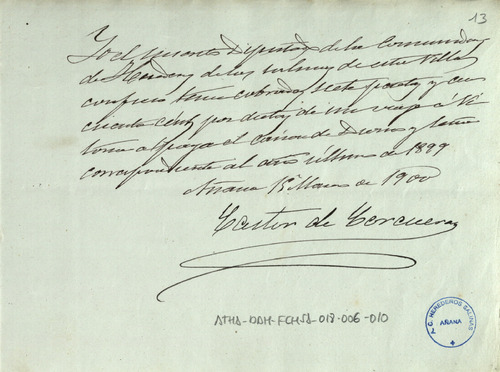 13
Yo el presente Diputado de la Comunidad
de Herederos de las salinas de esta Villa
confieso tener cobradas siete pesetas y cin
cuenta cents por dietas de mi viaje a Vi
toria a pagar el Canon de
correspondiente al año último de 1899
Añana 15 Marzo de 1900
Castor de Corcuera
ATHA-DAH-FCHSA-018-006-010
C. HEREDEROS SALINAS
AÑANA